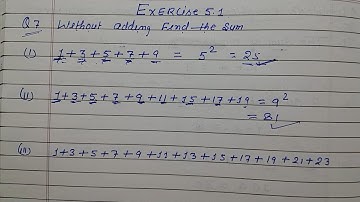 Exercise 5.1
Q7 Without adding find the sum
(i) 1+3+5+7+9 = 5² = 25
(ii) 1+3+5+7+9+11+15+17+19 = 9²
= 81
(iii) 1+3+5+7+9+11+13+15+17+19+21+23